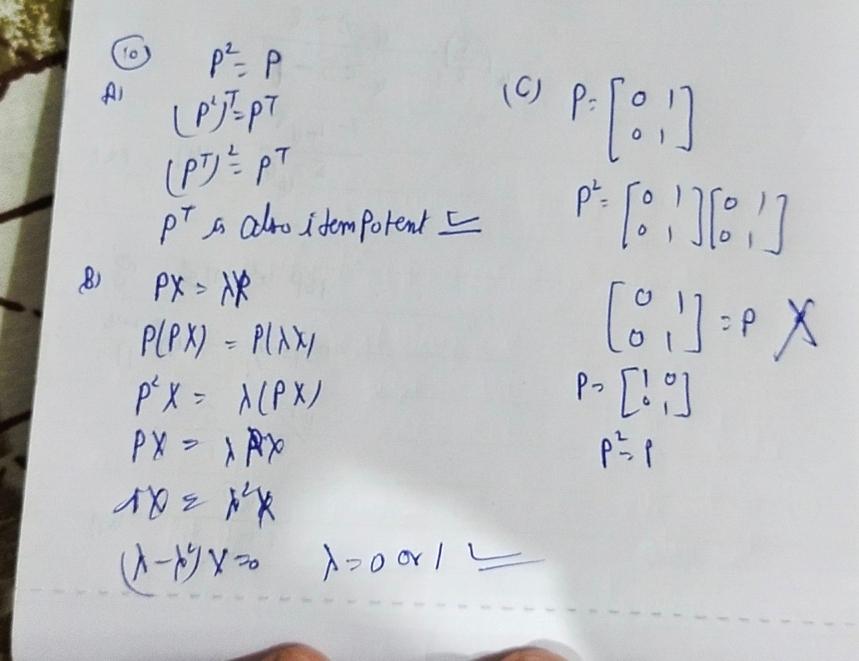 (10) P² = P
A) (P²)ᵀ = Pᵀ
(Pᵀ)² = Pᵀ
Pᵀ is also idempotent
B) PX = λX
P(PX) = P(λX)
P²X = λ(PX)
PX = λPX
λX = λ²X
(λ-λ²)X=0 λ=0 or 1
(C) P = [0 1
0 1]
P² = [0 1 [0 1
0 1] 0 1]
[0 1
0 1] = P X
P = [1 0
0 1]
P² = P